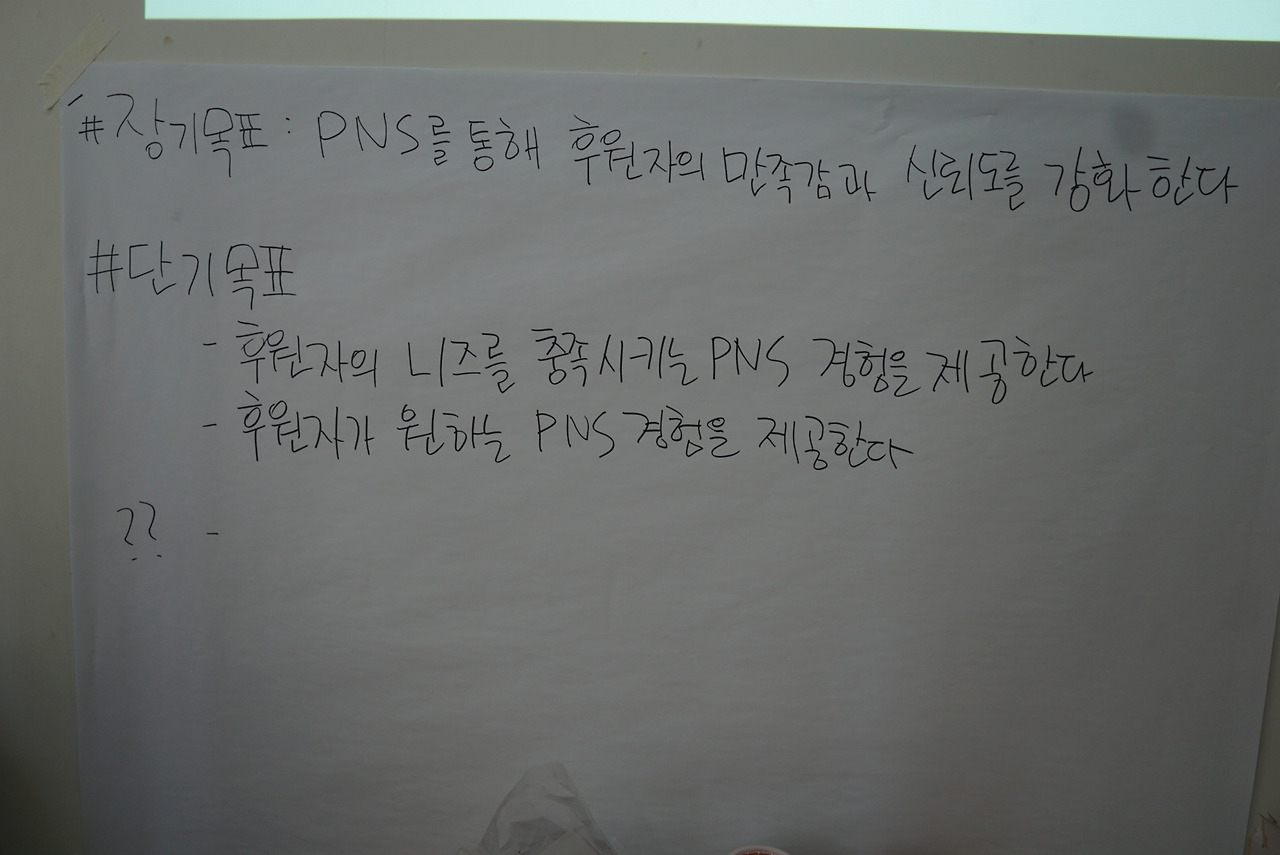 #장기목표 : PNS를 통해 후원자의 만족감과 신뢰도를 강화한다
#단기목표
- 후원자의 니즈를 충족시키는 PNS 경험을 제공한다
- 후원자가 원하는 PNS 경험을 제공한다
?? -